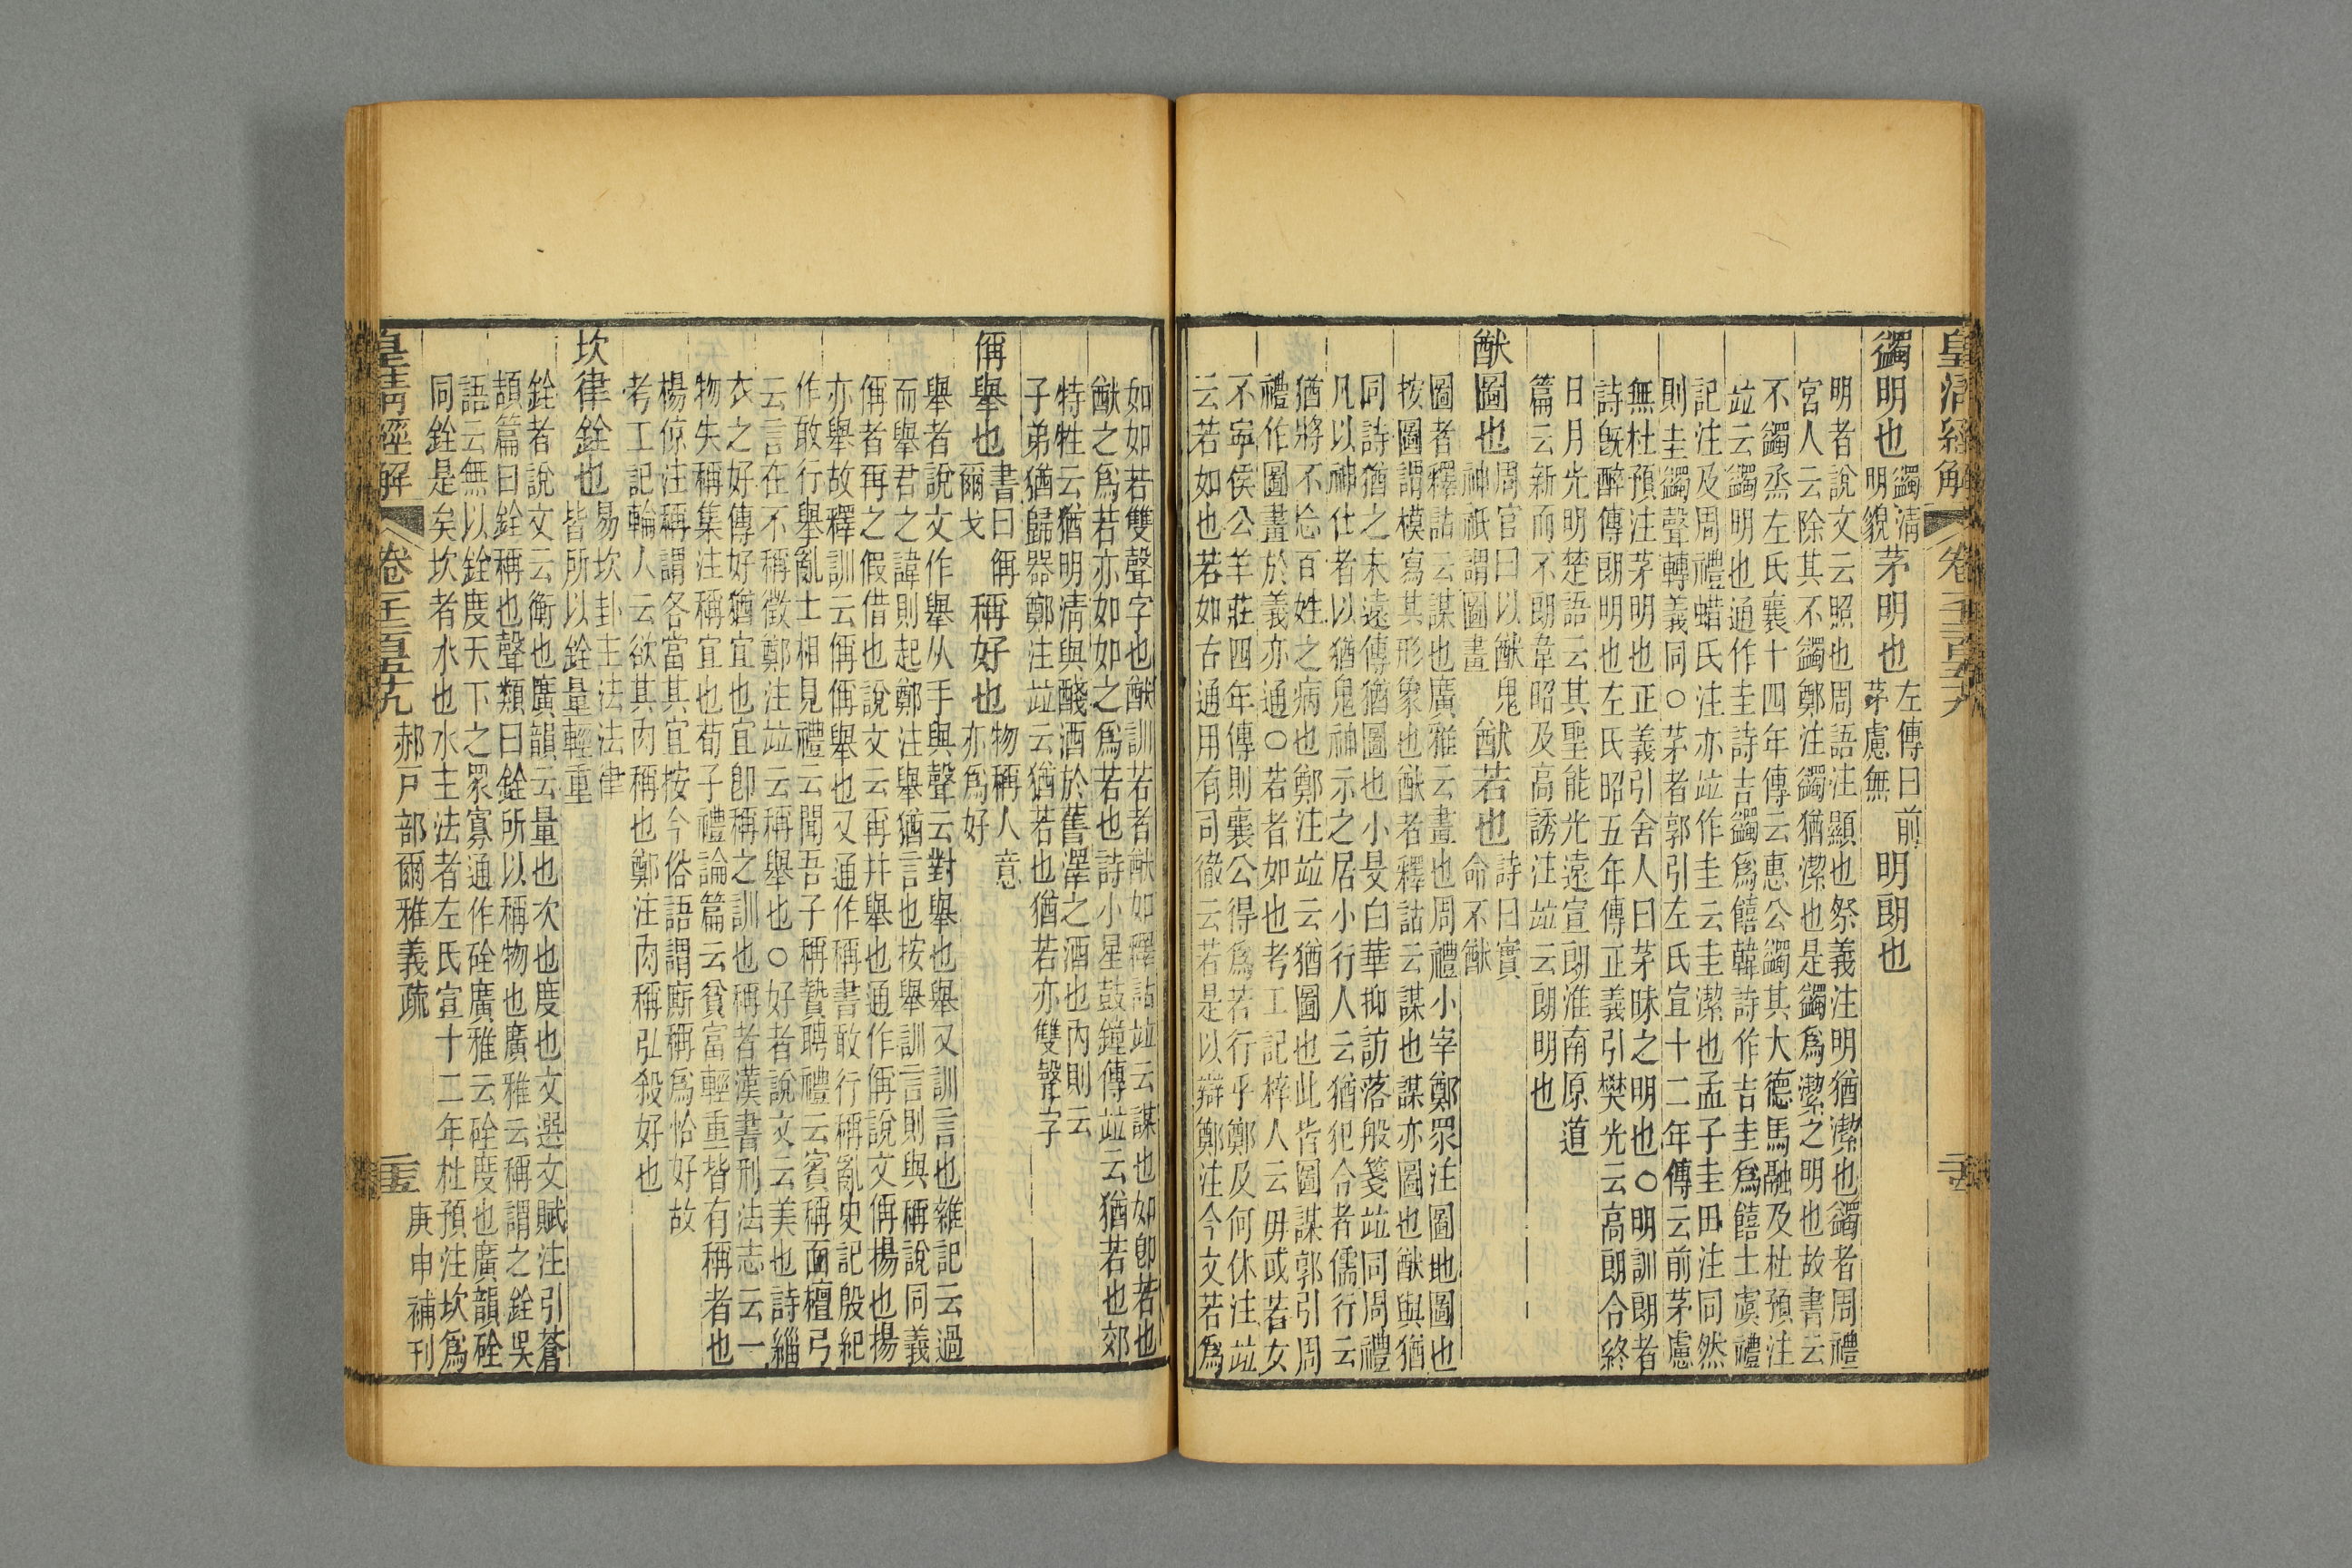 皇清經解 卷一千二百五十九
蠲明也 蠲清明貌 茅明也 左傳曰前茅慮無 明朗也
明者說文云照也周語注顯也祭義注明猶潔也蠲者周禮
宮人云除其不蠲鄭注蠲猶潔也是蠲爲潔之明也故書云
不蠲烝左氏襄十四年傳云惠公蠲其大德馬融及杜預注
竝云蠲明也通作圭詩吉蠲爲饎韓詩作吉圭爲饎士虞禮
記注及周禮蜡氏注亦竝作圭云圭潔也孟子圭田注同然
則圭蠲聲轉義同○茅者郭引左氏宣十二年傳云前茅慮
無杜預注茅明也正義引舍人曰茅昧之明也○明訓朗者
詩旣醉傳朗明也左氏昭五年傳正義引樊光云高朗令終
日月光明楚語云其聖能光遠宣朗淮南原道
篇云新而不朗韋昭及高誘注竝云朗明也
猷圖也 周官曰以猷鬼神祇謂圖畫 猷若也 詩曰實命不猷
圖者釋詁云謀也廣雅云畫也周禮小宰鄭眾注圖地圖也
按圖謂模寫其形象也猷者釋詁云謀也謀亦圖也猷與猶
同詩猶之未遠傳猶圖也小旻白華抑訪落般箋竝同周禮
凡以神仕者以猶鬼神示之居小行人云猶犯令者儒行云
猶將不忘百姓之病也鄭注竝云猶圖也此皆圖謀郭引周
禮作圖畫於義亦通○若者如也考工記梓人云毋或若女
不寧侯公羊莊四年傳則襄公得爲若行乎鄭及何休注竝
云若如也若如古通用有司徹云若是以辯鄭注今文若爲
如如若雙聲字也猷訓若者猷如釋詁竝云謀也如卽若也
猷之爲若亦如如之爲若也詩小星鼓鐘傳竝云猶若也郊
特牲云猶明淸與醆酒於舊澤之酒也內則云
子弟猶歸器鄭注竝云猶若也猶若亦雙聲字
偁舉也 書曰偁爾戈 稱好也 物稱人意亦爲好
舉者說文作擧从手與聲云對舉也舉又訓言也雜記云過
而舉君之諱則起鄭注舉猶言也按舉訓言則與稱說同義
偁者再之假借也說文云再幷舉也通作偁說文偁揚也揚
亦舉故釋訓云偁偁舉也又通作稱書敢行稱亂史記殷紀
作敢行舉亂士相見禮云聞吾子稱贄聘禮云賓稱面檀弓
云言在不稱徵鄭注竝云稱舉也○好者說文云美也詩緇
衣之好傳好猶宜也宜卽稱之訓也稱者漢書刑法志云一
物失稱集注稱宜也荀子禮論篇云貧富輕重皆有稱者也
楊倞注稱謂各當其宜按今俗語謂廝稱爲恰好故
考工記輪人云欲其肉稱也鄭注肉稱弘殺好也
坎律銓也 易坎卦主法法律皆所以銓量輕重
銓者說文云衡也廣韻云量也次也度也文選文賦注引蒼
頡篇曰銓稱也聲類曰銓所以稱物也廣雅云稱謂之銓吳
語云無以銓度天下之眾寡通作硂廣雅云硂度也廣韻硂
同銓是矣坎者水也水主法者左氏宣十二年杜預注坎爲
皇清經解 卷一千二百五十九 郝戶部爾雅義疏 庚申補刊